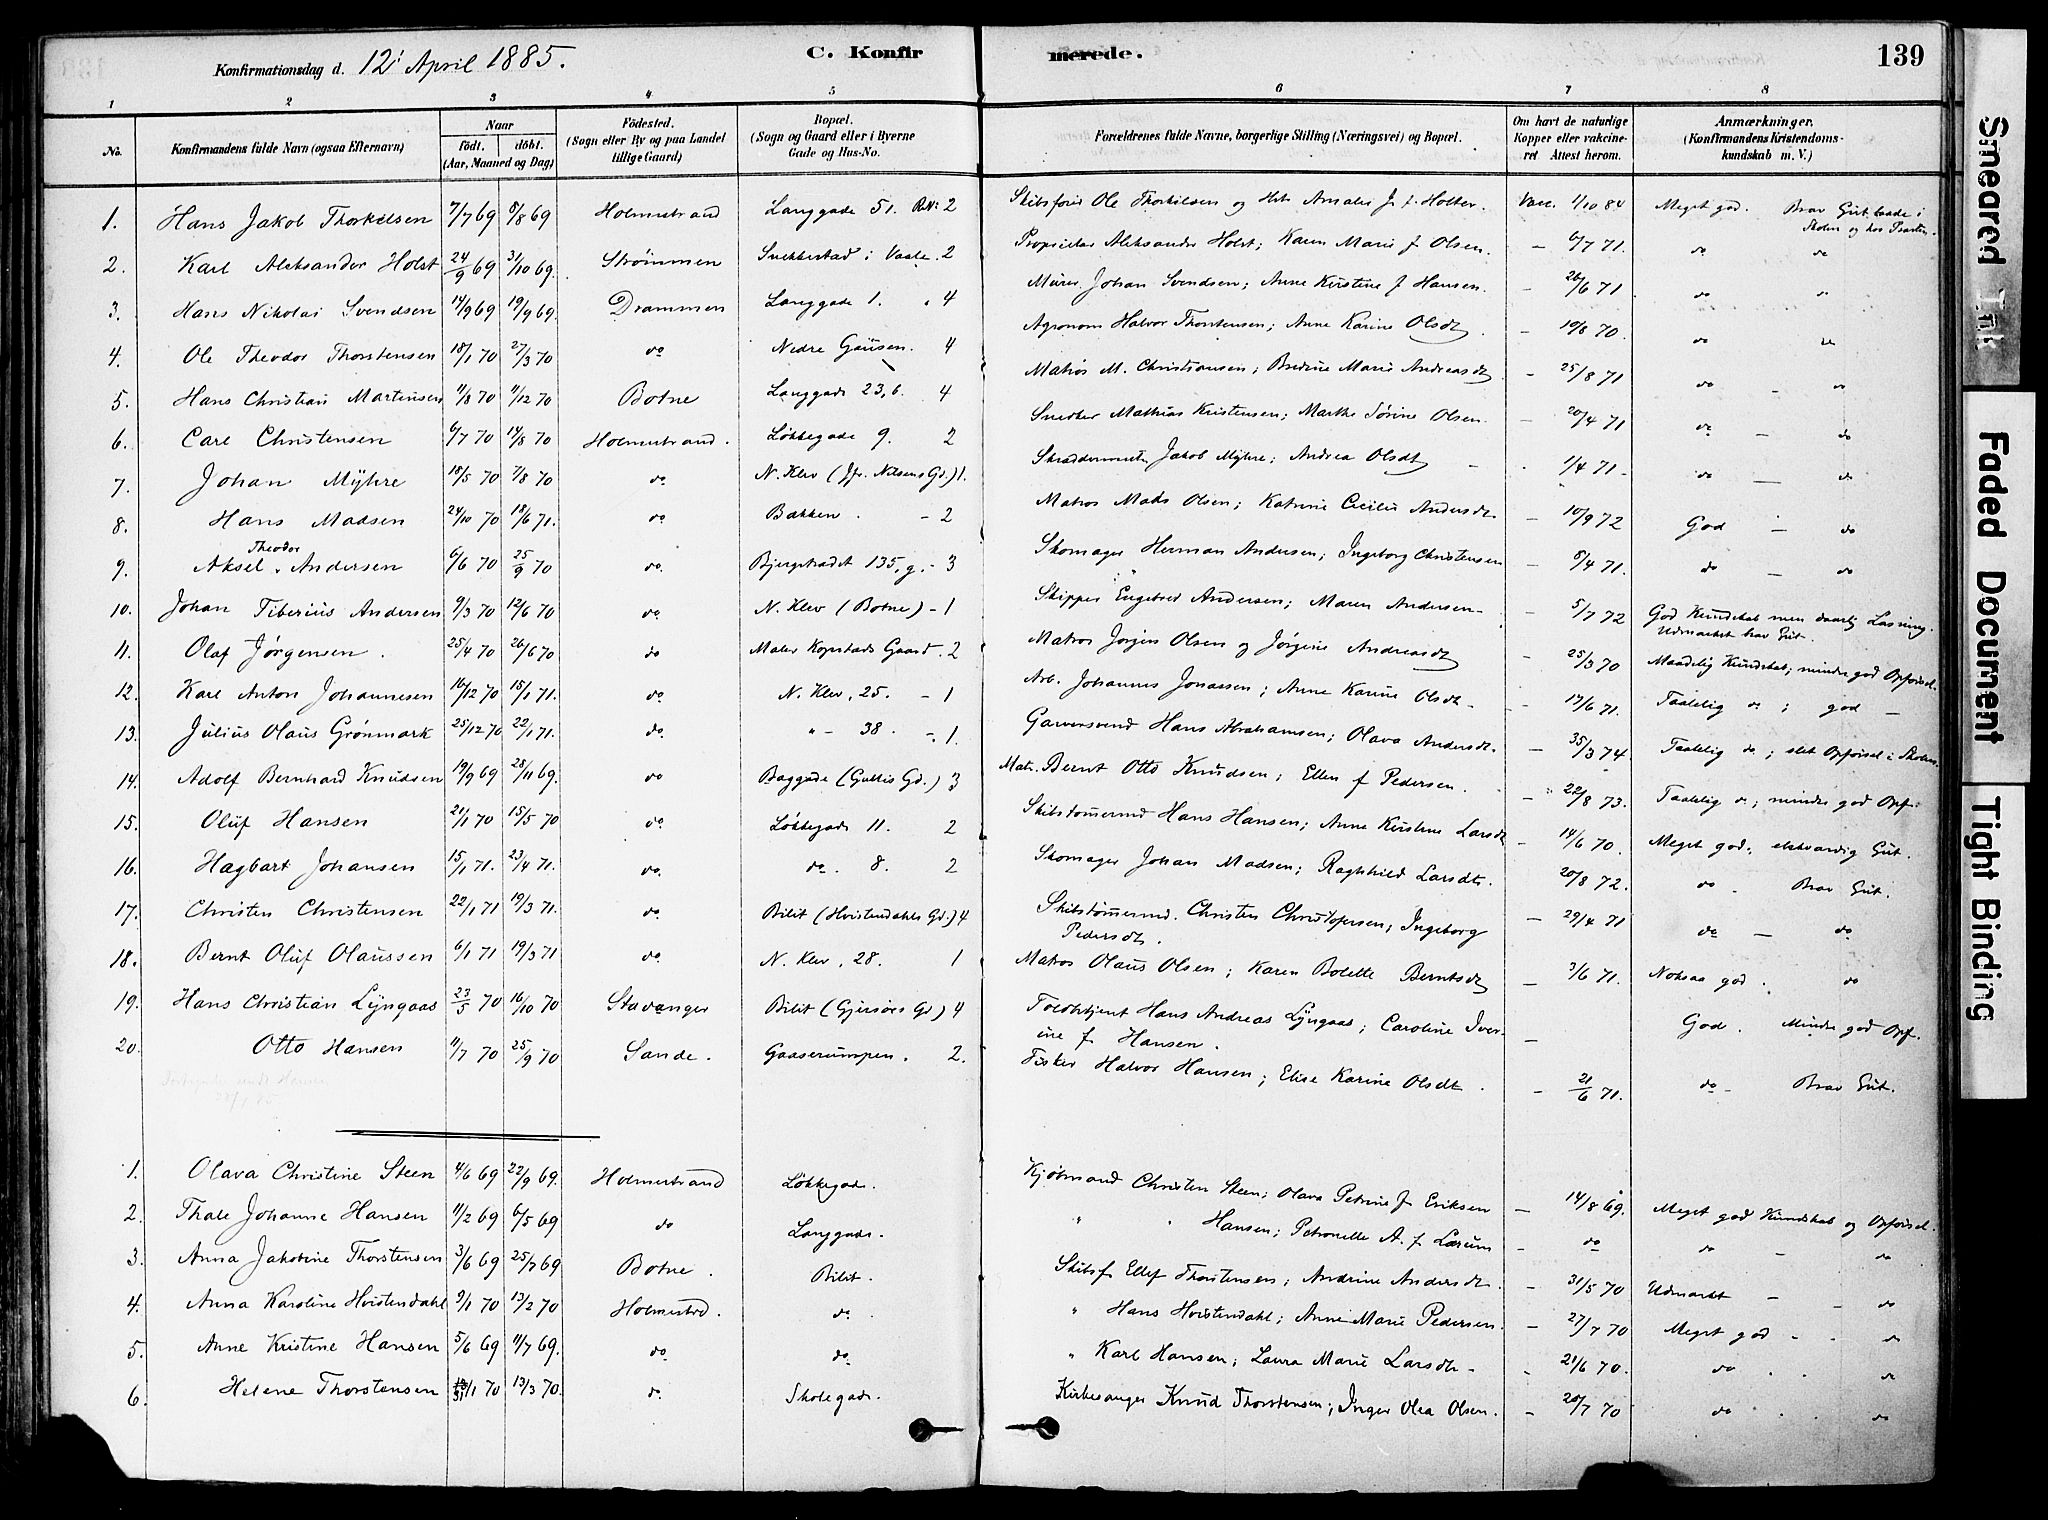 Konfirmationsdag d. 12' April 1885. C. Konfirmerede. 139
1 2 3 4 5 6 7 8
No. Konfirmandens fulde Navn (ogsaa Efternavn) Naar født. døbt. (Aar, Maaned og Dag) Födested. (Sogn eller By og paa Landet tillige Gaard) Bopæl. (Sogn og Gaard eller i Byerne Gade og Hus-No. Forældrenes fulde Navne, borgerlige Stilling (Næringsvei) og Bopæl. Om havt de naturlige Kopper eller vakcineret Attest herom. Anmærkninger. (Konfirmandens Kristendomskundskab m. V.)
1. Hans Jakob Thorkelsen 7/7 69 8/8 69 Holmestrand Langgade 51. 2 Skibsfører Ole Thorkilsen og Amalie J. f. Holter. Vacc. 1/10 84 Meget god. Brav Gut baade i Skolen og hos Præsten.
2. Karl Aleksander Holst 24/9 69 31/10 69. Strømmen Snekkestad i Vaale. 2 Proprietær Aleksander Holst; Karen Marie f Olsen. – 6/7 71. do do
3. Hans Nikolai Svendsen 14/9 69 19/9 69. Drammen Langgade 1. " 4 Murer Johan Svendsen; Anne Kirstine f Hansen. – 26/6 71 do "
4. Ole Theodor Thorstensen 18/1 70 27/3 70 do Nedre Gausen. 4 Agronom Halvor Thorstensen; Anne Karine Olsdt. – 19/8 70. do do
5. Hans Christian Martensen 11/8 70 11/12 70 Botne Langgade 23, 6. 4 Matros M. Christiansen; Bredine Marie Andreasdt – 25/8 71 do – do
6. Carl Christensen 6/7 70 14/8 70 Holmestrand. Løkkegade 9. 2 Snedker Mathias Kristensen; Marthe Sørine Olsen. – 20/4 71 do – do
7. Johan Myhre 18/5 70 7/8 70 do N. Klev (Jfr. Nilsens Gd.) 1. Skræddermester Jakob Myhre; Andrea Olsdt – 1/4 71 – do – do
8. Hans Madsen 24/10 70 18/6 71. do Bakken. – 2 Matros Mads Olsen; Katrine Cecilie Andersdt. – 10/9 72 God – do
9. Aksel Theodor Andersen 6/6 70 25/9 70 do. Bjergstrædet 135, g. – 3 Skomager Herman Andersen; Ingeborg Christensen – 8/4 71. do – do
10. Johan Tiberius Andersen 9/3 70 12/6 70 do N. Klev (Botne) – 1 Skipper Engebret Andersen; Maren Andersen – – 5/7 72 God Kundskab men daarlig Læsning. Udmærket brav Gut.
11. Olaf Jørgensen. 25/4 70 26/6 70 do Maler Kopstads Gaard. 2 Matros Jørgen Olsen og Jørgine Andreasdt – 25/3 70 Maadelig Kundskab; mindre god Opførsel.
12. Karl Anton Johannesen 16/12 70 15/1 71. do N. Klev, 25. – 1 Arb. Johannes Jonassen; Anne Karine Olsdt – – 17/6 71. Taalelig do; god –
13. Julius Olaus Grønmark 25/12 70 22/1 71. do. " – 38. – 1. Garversvend Hans Abrahamsen; Olava Andersdt. – 35/3 74. Taalelig do; slet Opførsel i Skolen.
14. Adolf Bernhard Knudsen 19/9 69 28/11 69. do Baggade (Guttis Gd.) 3 Matr. Bernt Otto Knudsen; Ellen f Pedersen. – 22/8 73. Taalelig do; mindre god Opf.
15. Oluf Hansen 21/1 70 15/5 70 do Løkkegade 11. 2 Skibstømmermd Hans Hansen; Anne Kirstine Larsdt – 14/6 70. Meget god. elskværdig Gut.
16. Hagbart Johansen 15/1 71. 23/4 71. do. do. 8. 2 Skomager Johan Madsen; Raghild Larsdt. – 20/8 72. do. Brav Gut.
17. Christen Christensen 22/1 71 19/3 71. do. Bilit (Hvistendahls Gd.) 4 Skibstømmermd. Christen Christofersen; Ingeborg Pedersdt. – 29/4 71 do – do
18. Bernt Oluf Olaussen 6/1 71 19/3 71 do. N. Klev, 28. 1 Matros Olaus Olsen; Karen Bolette Berntsdt – 3/6 71. Noksaa god. do
19. Hans Christian Lyngaas 23/5 70 16/10 70 Stavanger Bilit (Gjersøes Gd.) 4 Toldbtjent Hans Andreas Lyngaas; Caroline Iverine f Hansen. – God. Mindre god Opf.
20. Otto Hansen 11/7 70 25/9 70 Sande. Gaaserumpen. 2. Fisker Halvor Hansen; Elise Karine Olsdt. – 21/6 71. do – Brav Gut.
1. Olava Christine Steen 4/6 69 22/9 69. Holmestrand Løkkegade. Kjøbmand Christen Steen; Olava Petrine f Eriksen – 14/8 69. Meget god Kundskab og Opførsel.
2. Thale Johanne Hansen 11/2 69 6/5 69 do Langgade. " " Hansen; Petronelle A. f. Larum – do do – do
3. Anna Jakobine Thorstensen 3/6 69 25/7 69 Botne. Bilit. Skibsf Ellef Thorstensen; Andrine Andersdt. – 31/5 70 Udmærket – – do
4. Anna Karoline Hvistendahl 9/1 70 13/2 70 Holmestrd. do. " Hans Hvistendahl; Anne Marie Pedersen. – 27/7 70 Meget god – " do
5. Anne Kristine Hansen 5/6 69 11/7 69. do do " Karl Hansen; Laura Marie Larsdt – – 21/6 70. do " do
6. Helene Thorstensen 31/1 70 13/3 70. do. Skolegade. Kirkesanger Knud Thorstensen; Inger Olea Olsen. – 20/7 70 do " do
Smeared Ink
Faded Document
Tight Binding